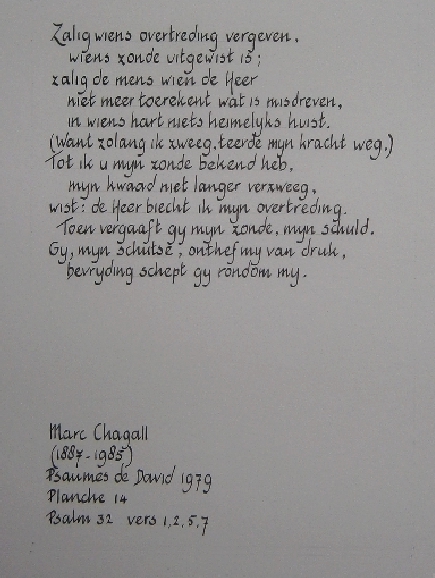 Zalig wiens overtreding vergeven,
wiens zonde uitgewist is;
zalig de mens wien de Heer
niet meer toerekent wat is misdreven,
in wiens hart niets heimelyks huist.
(Want zolang ik zweeg, teerde myn kracht weg,)
Tot ik u myn zonde bekend heb,
myn kwaad niet langer verzweeg,
wist: de Heer biecht ik myn overtreding.
Toen vergaaft gy myn zonde, myn schuld.
Gy, myn schutse, onthef my van druk,
bevryding schept gy rondom my.
Marc Chagall
(1887-1985)
Psaumes de David 1979
Planche 14
Psalm 32 vers 1,2,5,7